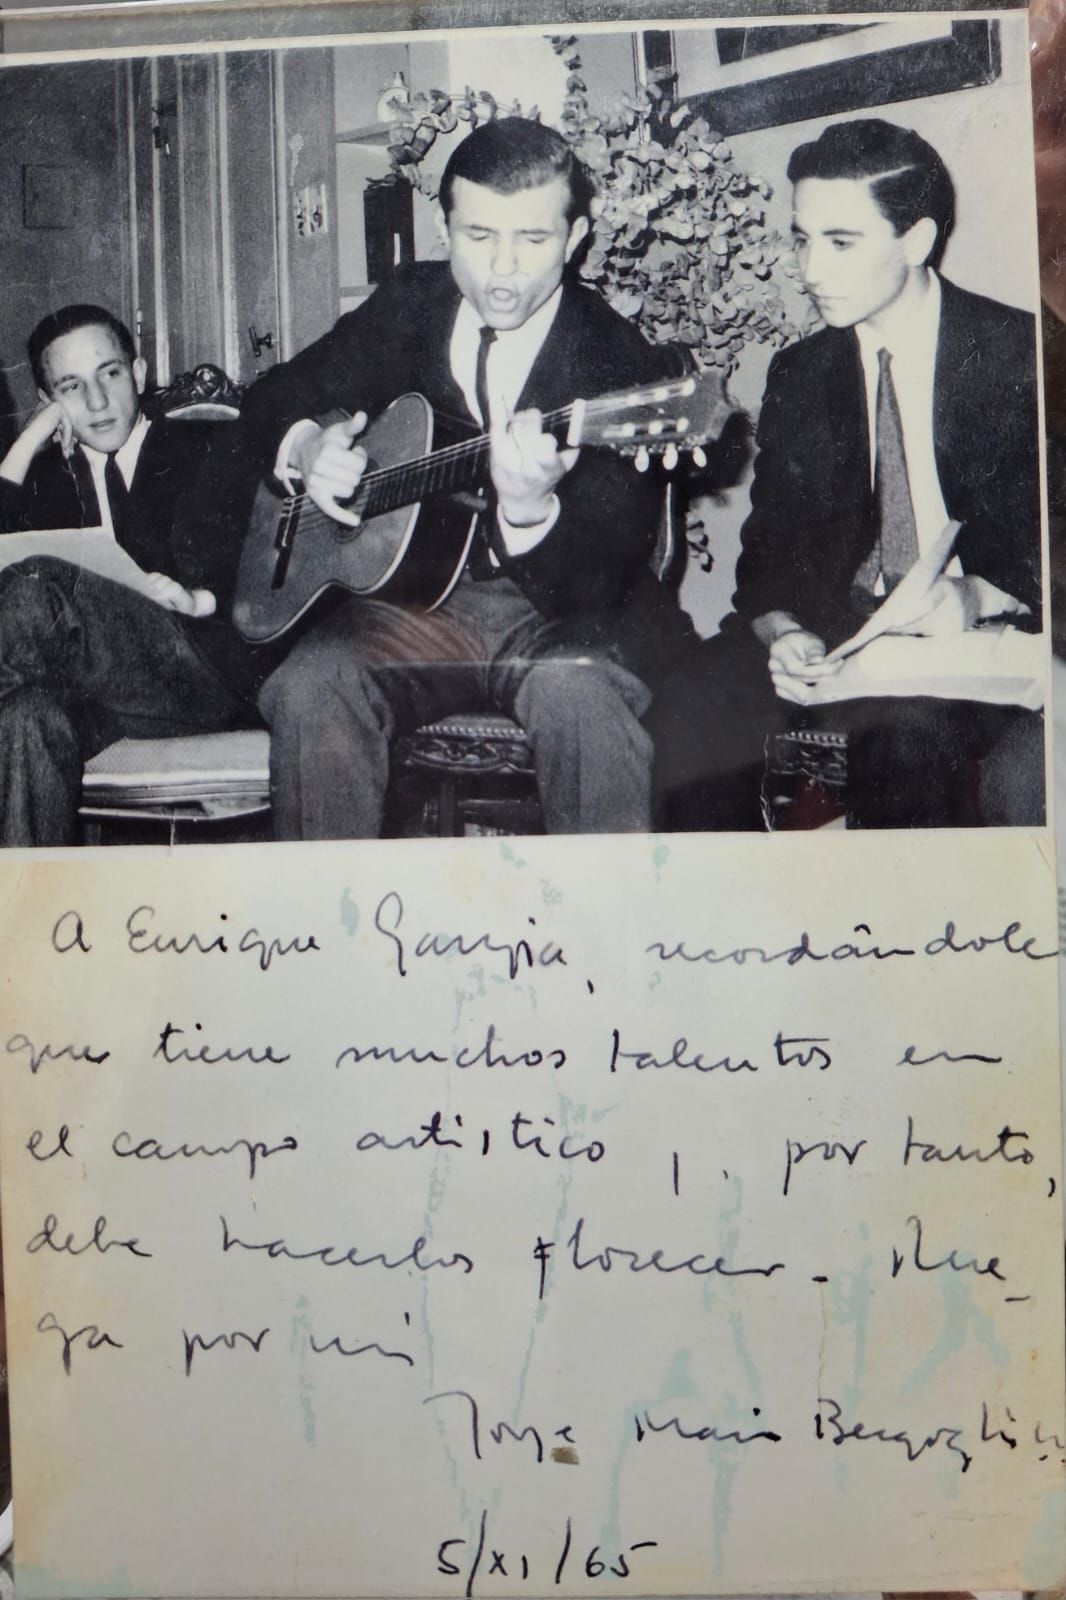 A Enrique Garyia, recordándole
que tiene muchos talentos en
el campo artístico, por tanto,
debe hacerlos florecer. Rue-
ga por mí
Jorge Mario Bergoglio
5/XI/65